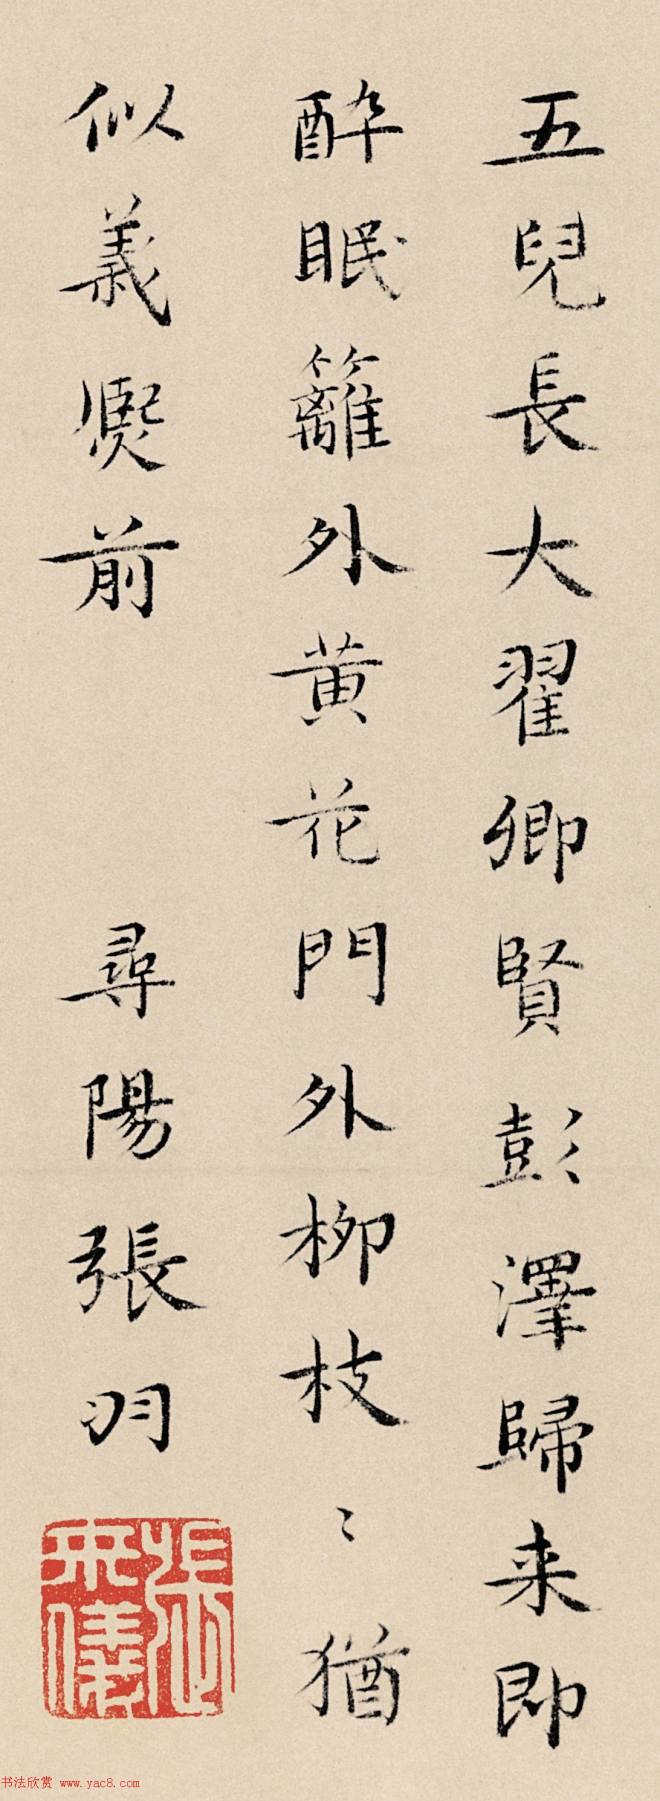 五兒長大翟卿賢彭澤歸来即
醉眠籬外黄花門外柳枝〻猶
似義熙前
尋陽張羽
張羽來儀
书法欣赏 www.yac8.com